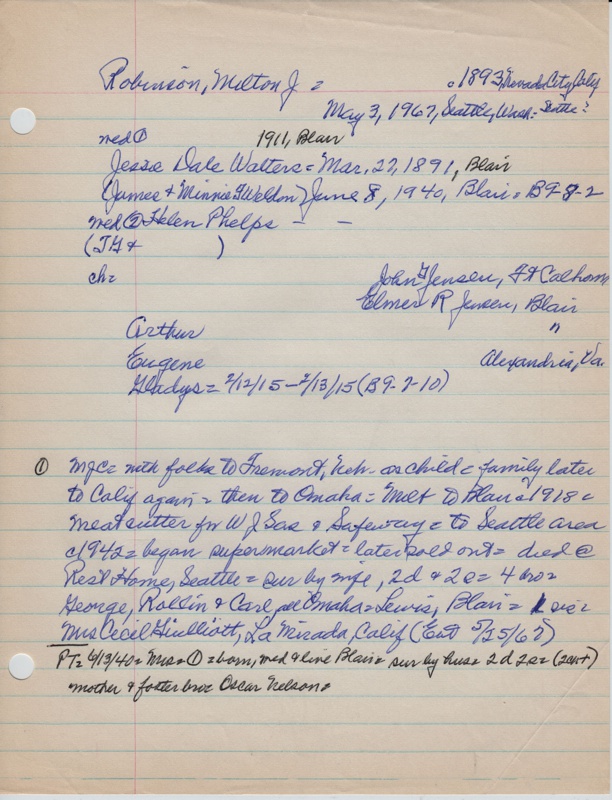 Robinson, Milton J =
c 1893, Nevada City, Calif
May 3, 1967, Seattle, Wash = Seattle?
med ① 1911, Blair
Jessie Dale Walters = Mar. 27, 1891, Blair
(James & Minnie Weldon) June 8, 1940, Blair = B9-8-2
med ② Helen Phelps - -
(J &         )
ch =
John Jensen, Ft Calhoun
Elmer R Jensen, Blair
Arthur "
Eugene Alexandria, Va.
Gladys = 2/12/15 - 2/13/15 (B9-7-10)
① MJC = with folks to Fremont, Neb. as child = family later
to Calif again = then to Omaha = Milt to Blair c 1918 =
meat cutter for W J Sas & Safeway = to Seattle area
c 1942 = began supermarket = later sold out = died @
Rest Home, Seattle = sur by wife, 2d & 2s = 4 bro =
George, Rollin & Carl, all Omaha = Lewis, Blair = 1 sis =
Mrs Cecil La Mirada, Calif (Ent 5/25/67)
PT = 6/13/40 = Mrs ① = born, med & live Blair = sur by hus = 2d 2s =
mother & foster bro = Oscar Nelson =